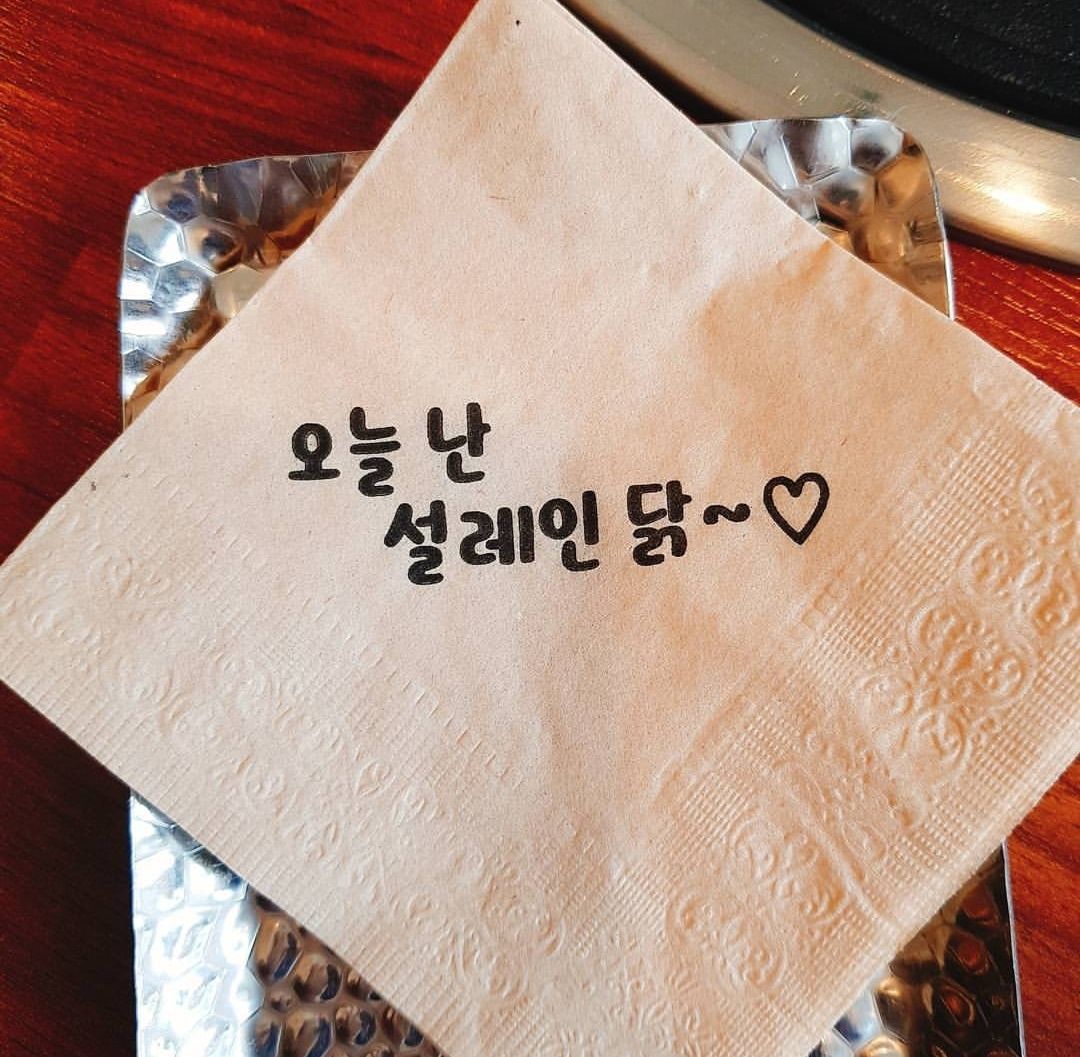 오늘 난
설레인 닭~♡